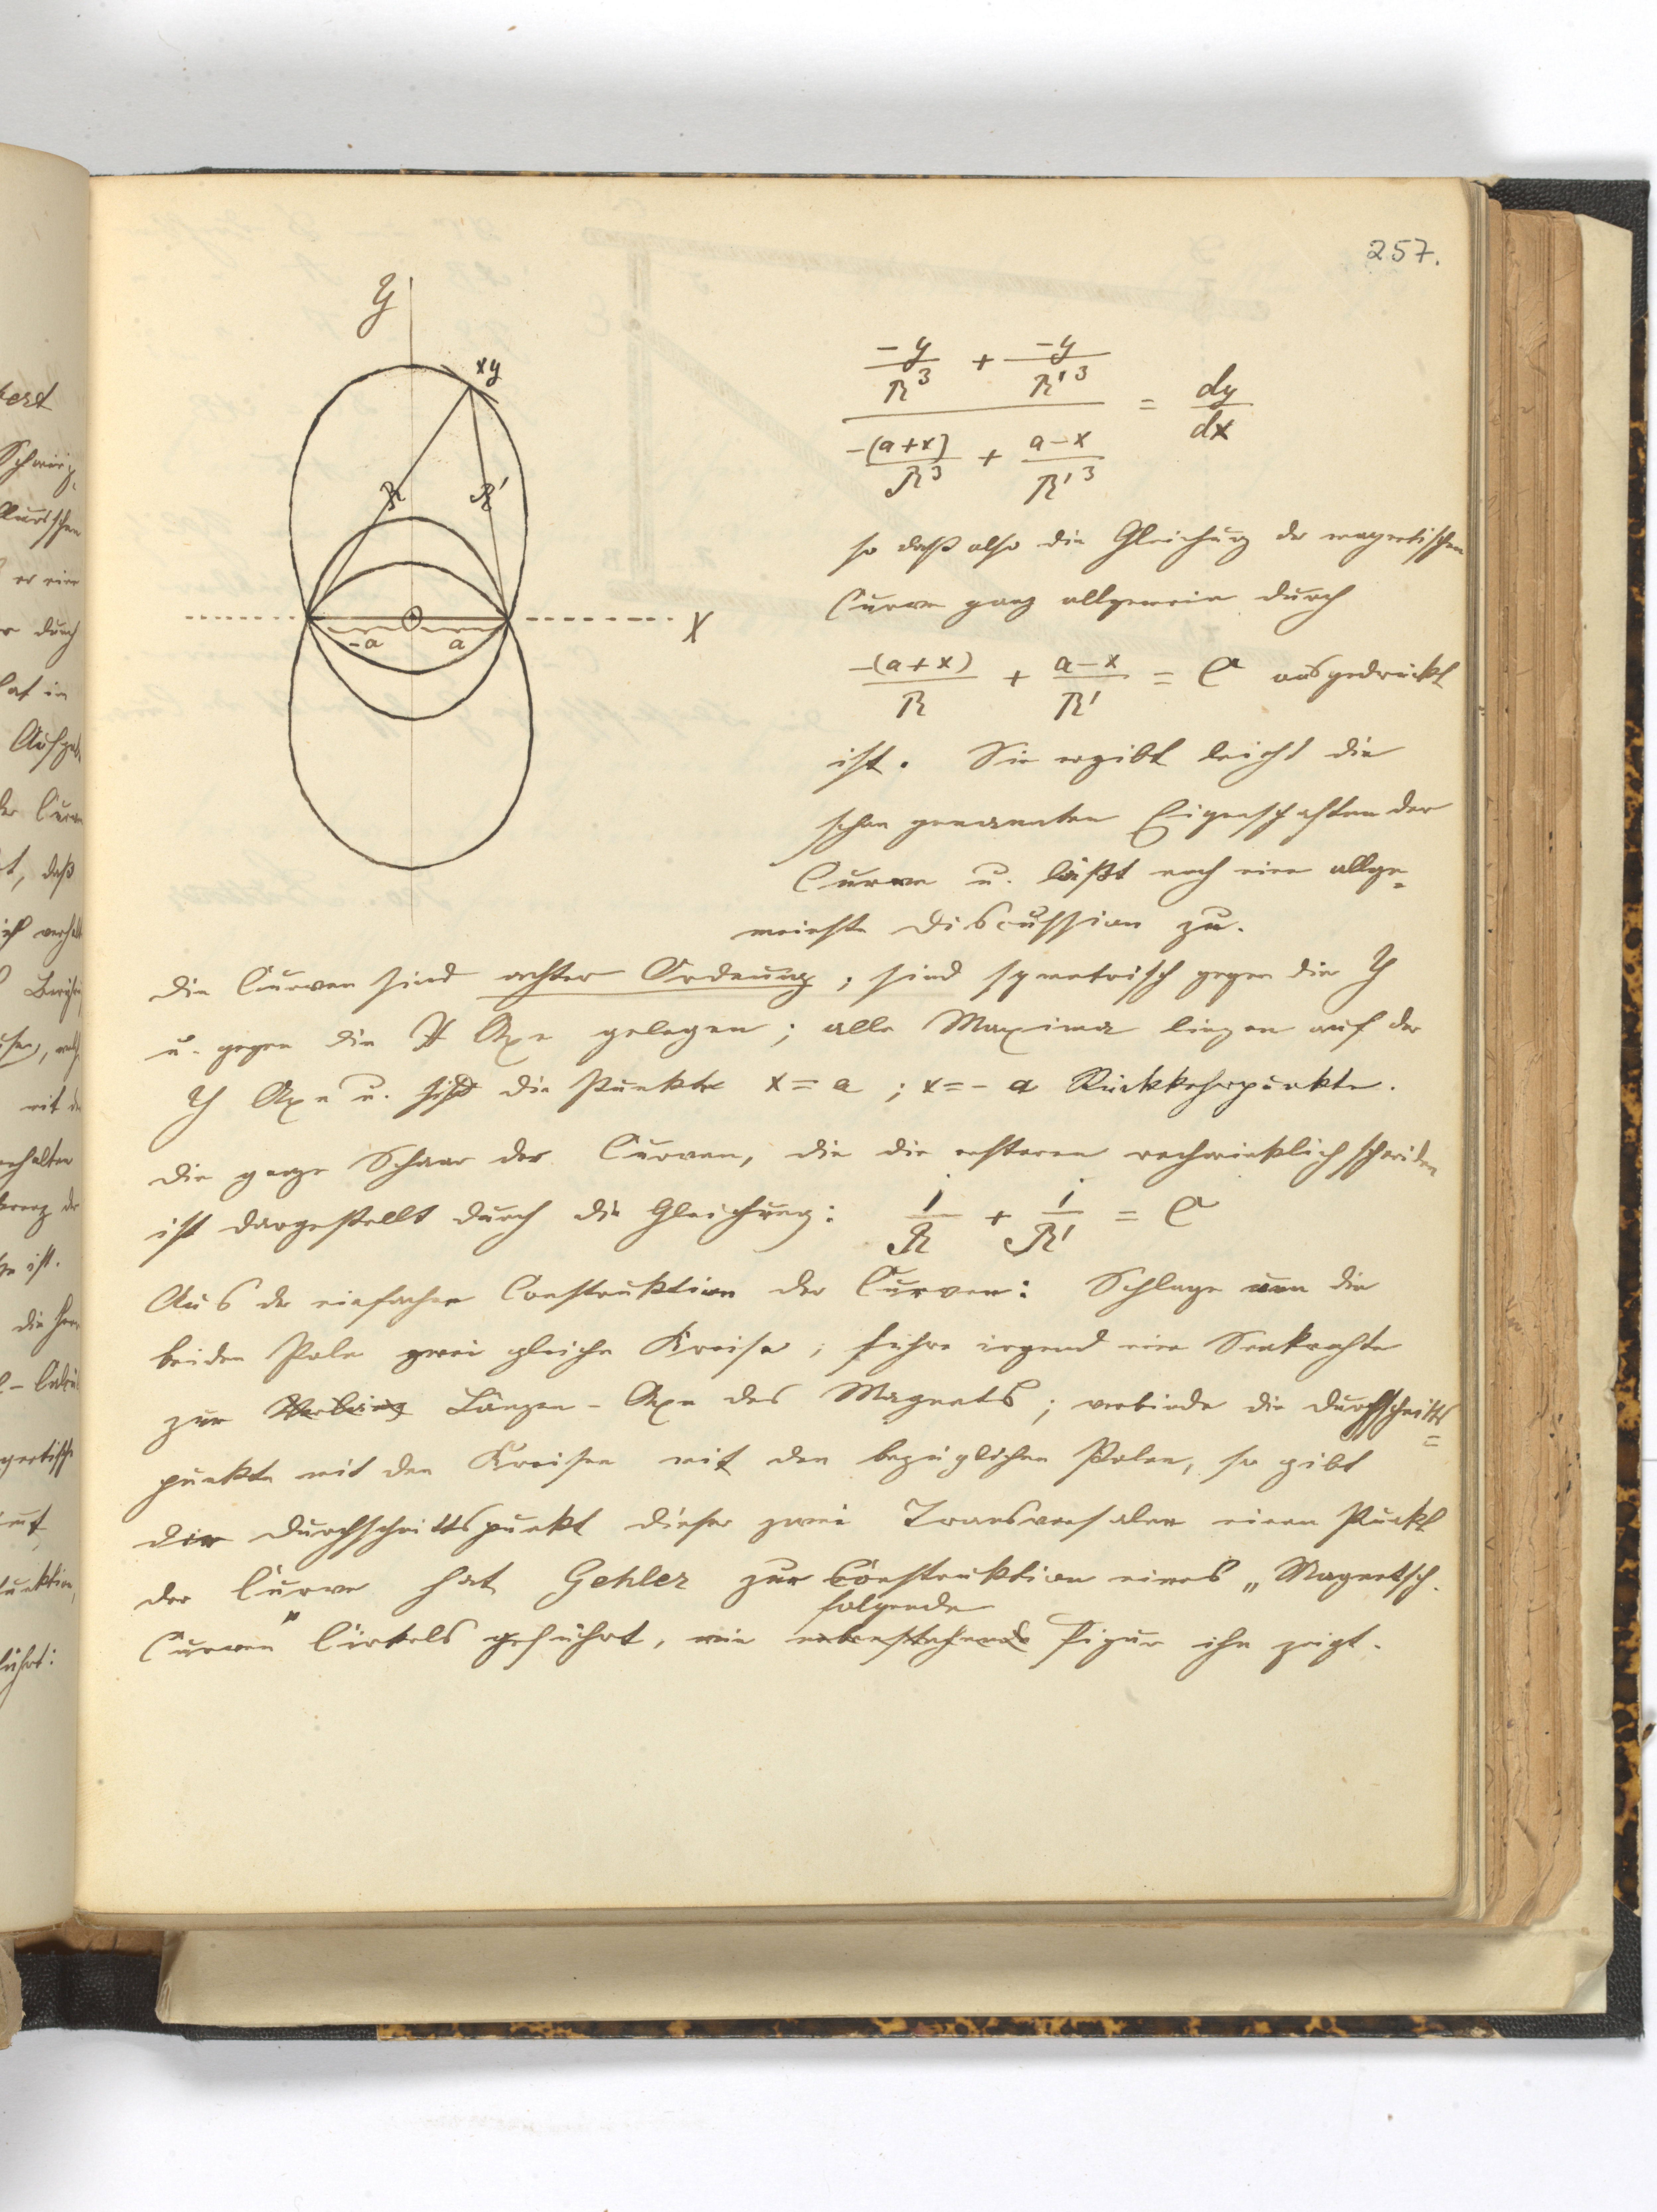 257.
Y
xy
R
R'
-a
a
X
-y/R³ + -y/R'³
= dy/dx
-(a+x)/R³ + a-x/R'³
so daß also die Gleichung der magnetischen
Curven ganz allgemein durch
-(a+x)/R + a-x/R' = C ausgedrückt
ist. Sie ergibt leicht die
schon genannten Eigenschaften der
Curven u. läßt noch eine allge-
meinste Discussion zu.
Die Curven sind achter Ordnung; sind symetrisch gegen die Y
u. gegen die X Axe gelegen; alle Maxima liegen auf der
Y Axe u. sind die Punkte x = a ; x = - a Rückkehrpunkte.
Die ganze Schaar der Curven, die die ersteren rechwinklich schneiden
ist dargestellt durch die Gleichung: 1/R + 1/R' = C
Aus der einfachen Construktion der Curven: Schlage um die
beiden Pole zwei gleiche Kreise, führe irgend eine Senkrechte
zur Längen-Axe des Magnets; verbinde die Durchschnitts=
punkte mit den Kreisen mit den bezüglichen Polen, so gibt
der Durchschnittspunkt dieser zwei Transversalen einen Punkt
der Curve hat Gehler zur Construktion eines „Magnetsch.
folgende
Curven" Cirkels geführt, wie nebenstehende Figur ihn zeigt.